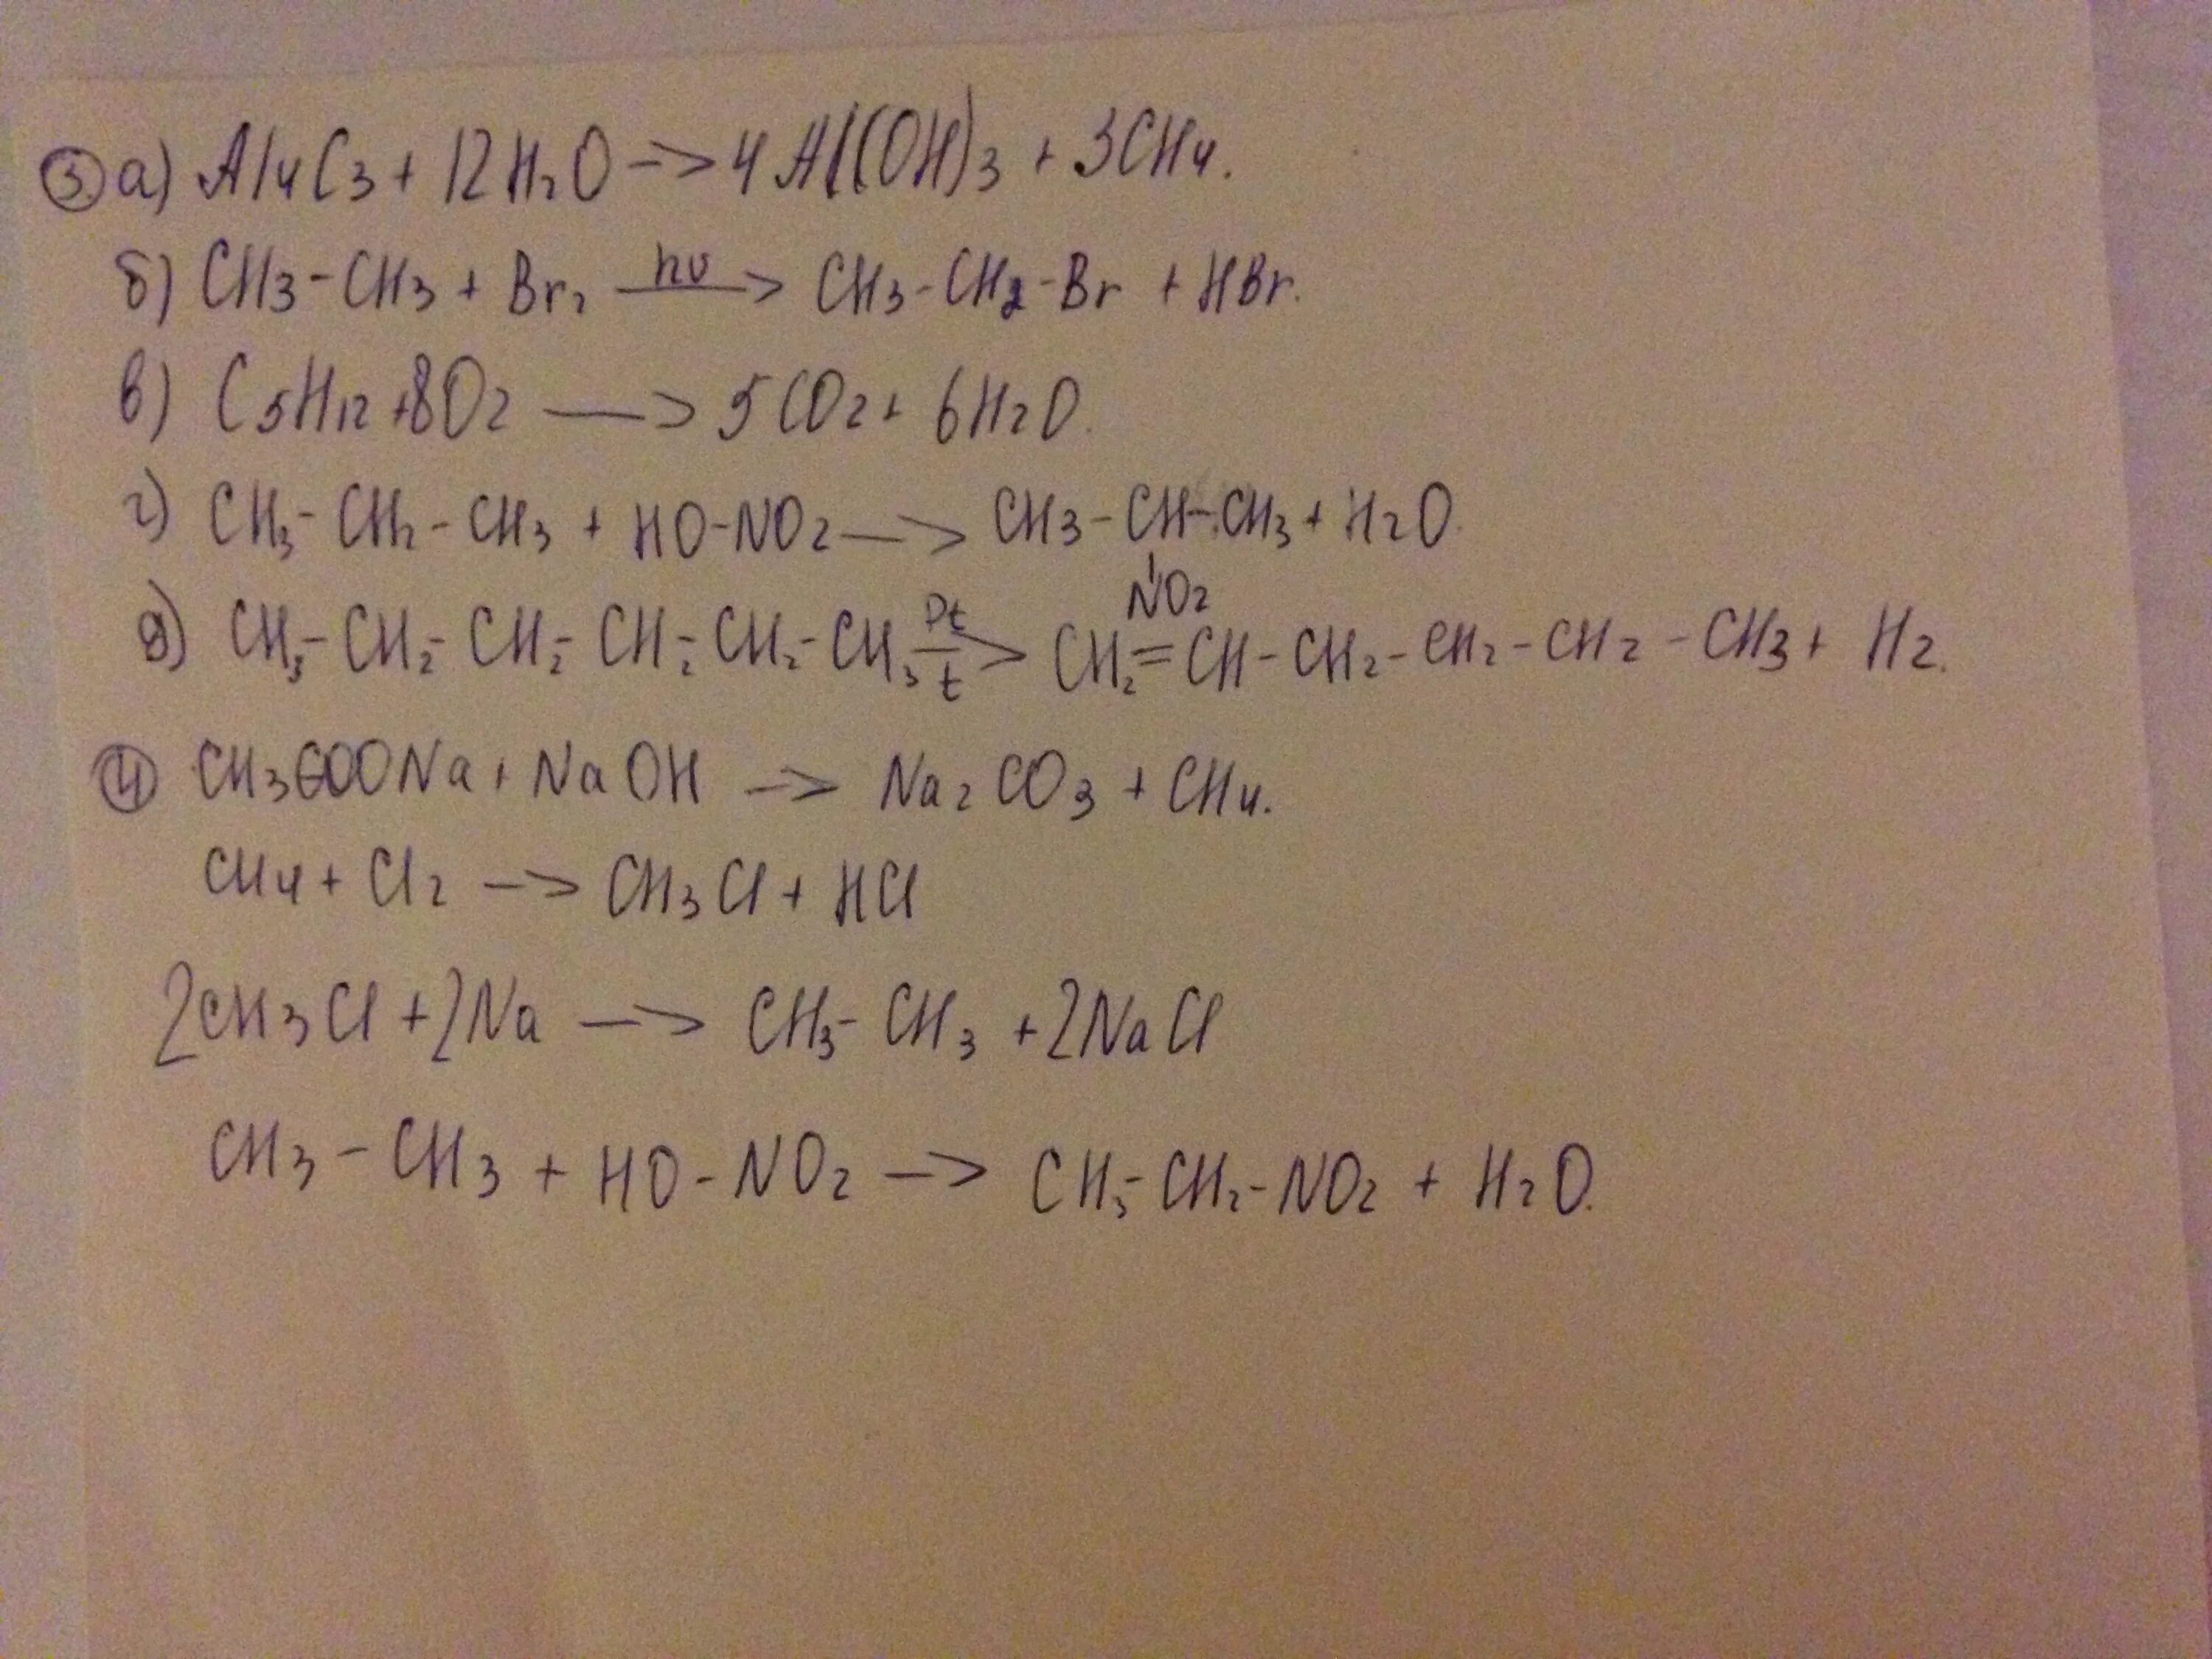 ③ а) Al4C3 + 12H2O -> 4Al(OH)3 + 3CH4.
б) CH3-CH3 + Br2 hν -> CH3-CH2-Br + HBr.
в) C5H12 + 8O2 -> 5CO2 + 6H2O.
г) CH3-CH2-CH3 + HO-NO2 -> CH3-CH-CH3 + H2O.
NO2
д) CH3-CH2-CH2-CH2-CH2-CH3 Pt t -> CH2=CH-CH2-CH2-CH2-CH3 + H2.
④ CH3COONa + NaOH -> Na2CO3 + CH4.
CH4 + Cl2 -> CH3Cl + HCl
2CH3Cl + 2Na -> CH3-CH3 + 2NaCl
CH3-CH3 + HO-NO2 -> CH3-CH2-NO2 + H2O.